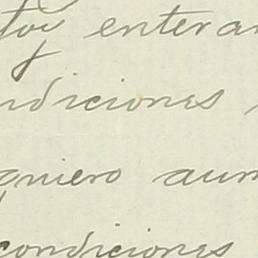 toy entera
ndiciones
quiero aum
condiciones